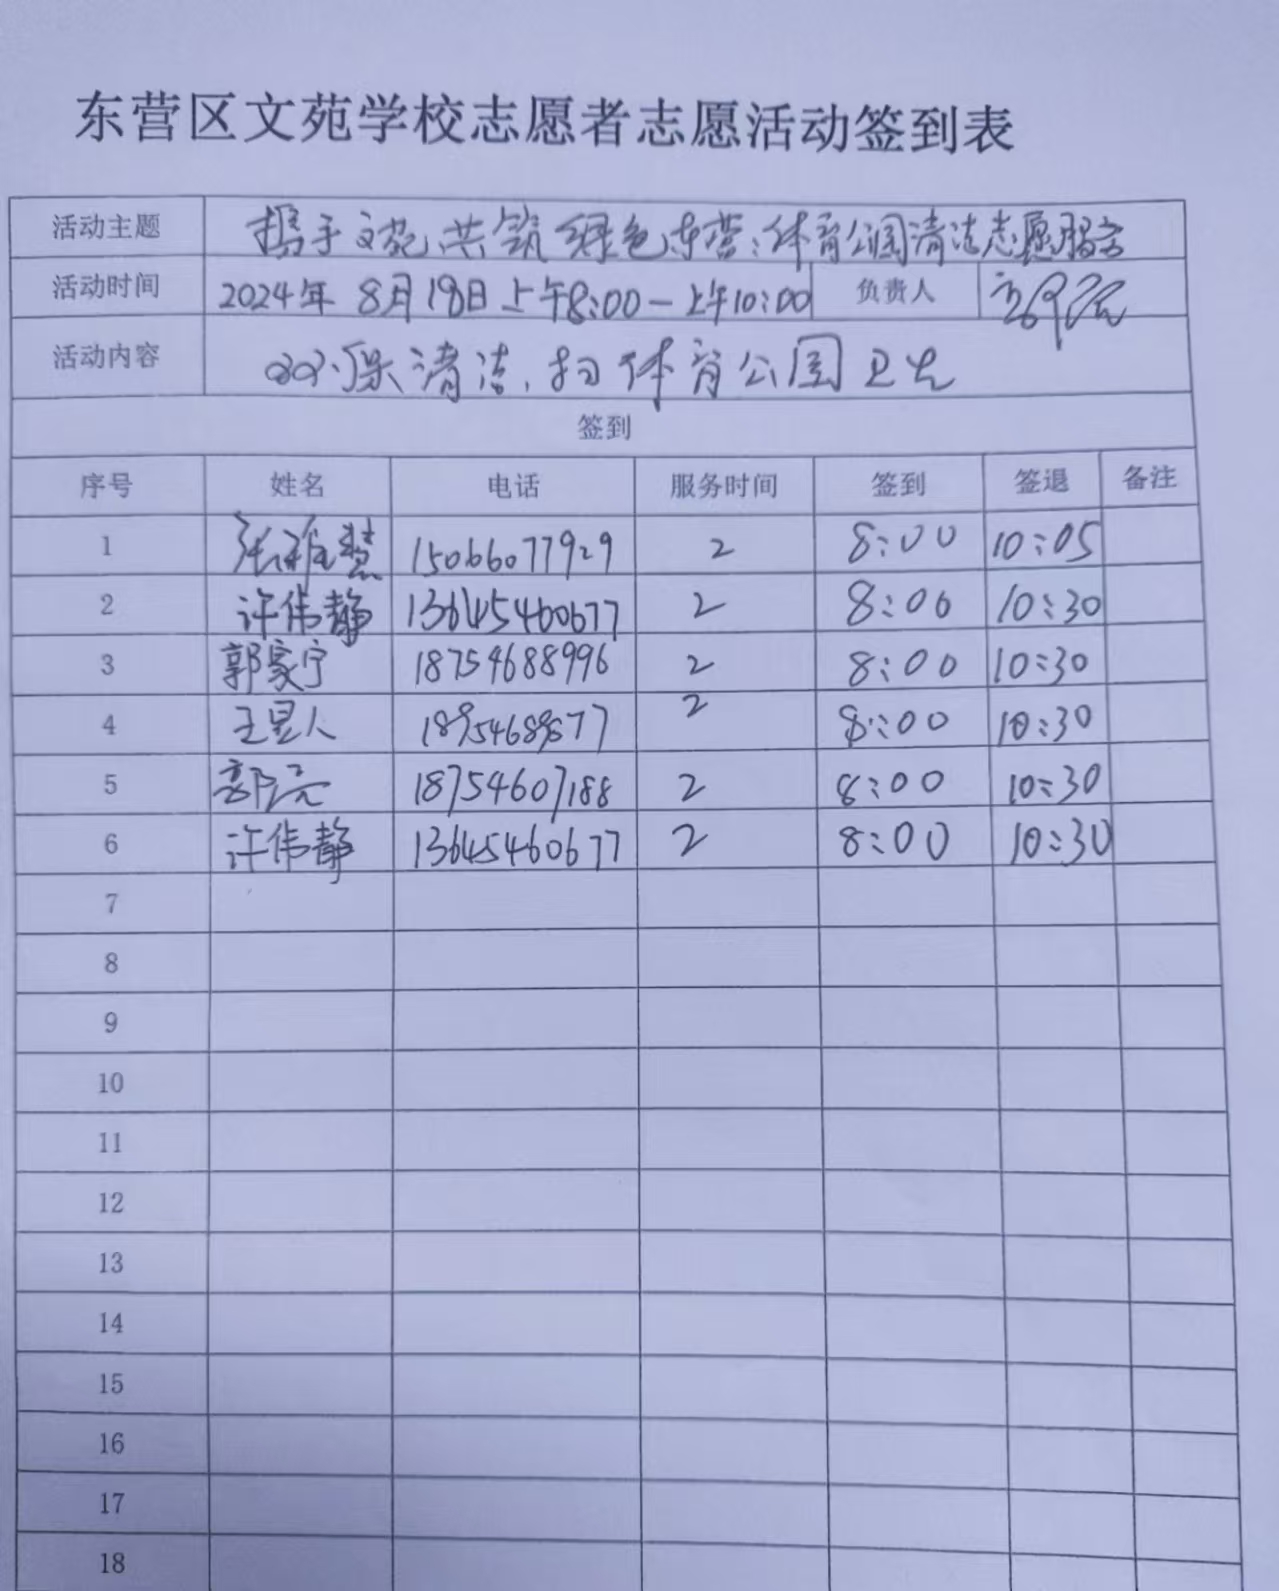 东营区文苑学校志愿者志愿活动签到表
活动主题 携手文苑共筑绿色东营:体育公园清洁志愿服务
活动时间 2024年 8月18日上午8:00-上午10:00 负责人 郭亮
活动内容 环保清洁,扫体育公园卫生
签到
序号 姓名 电话 服务时间 签到 签退 备注
1 张雅慧 15066077929 2 8:00 10:05
2 许伟静 13645460677 2 8:00 10:30
3 郭家宁 18754688996 2 8:00 10:30
4 王昱人 2 8:00 10:30
5 郭亮 18754607188 2 8:00 10:30
6 许伟静 13645460677 2 8:00 10:30
7
8
9
10
11
12
13
14
15
16
17
18